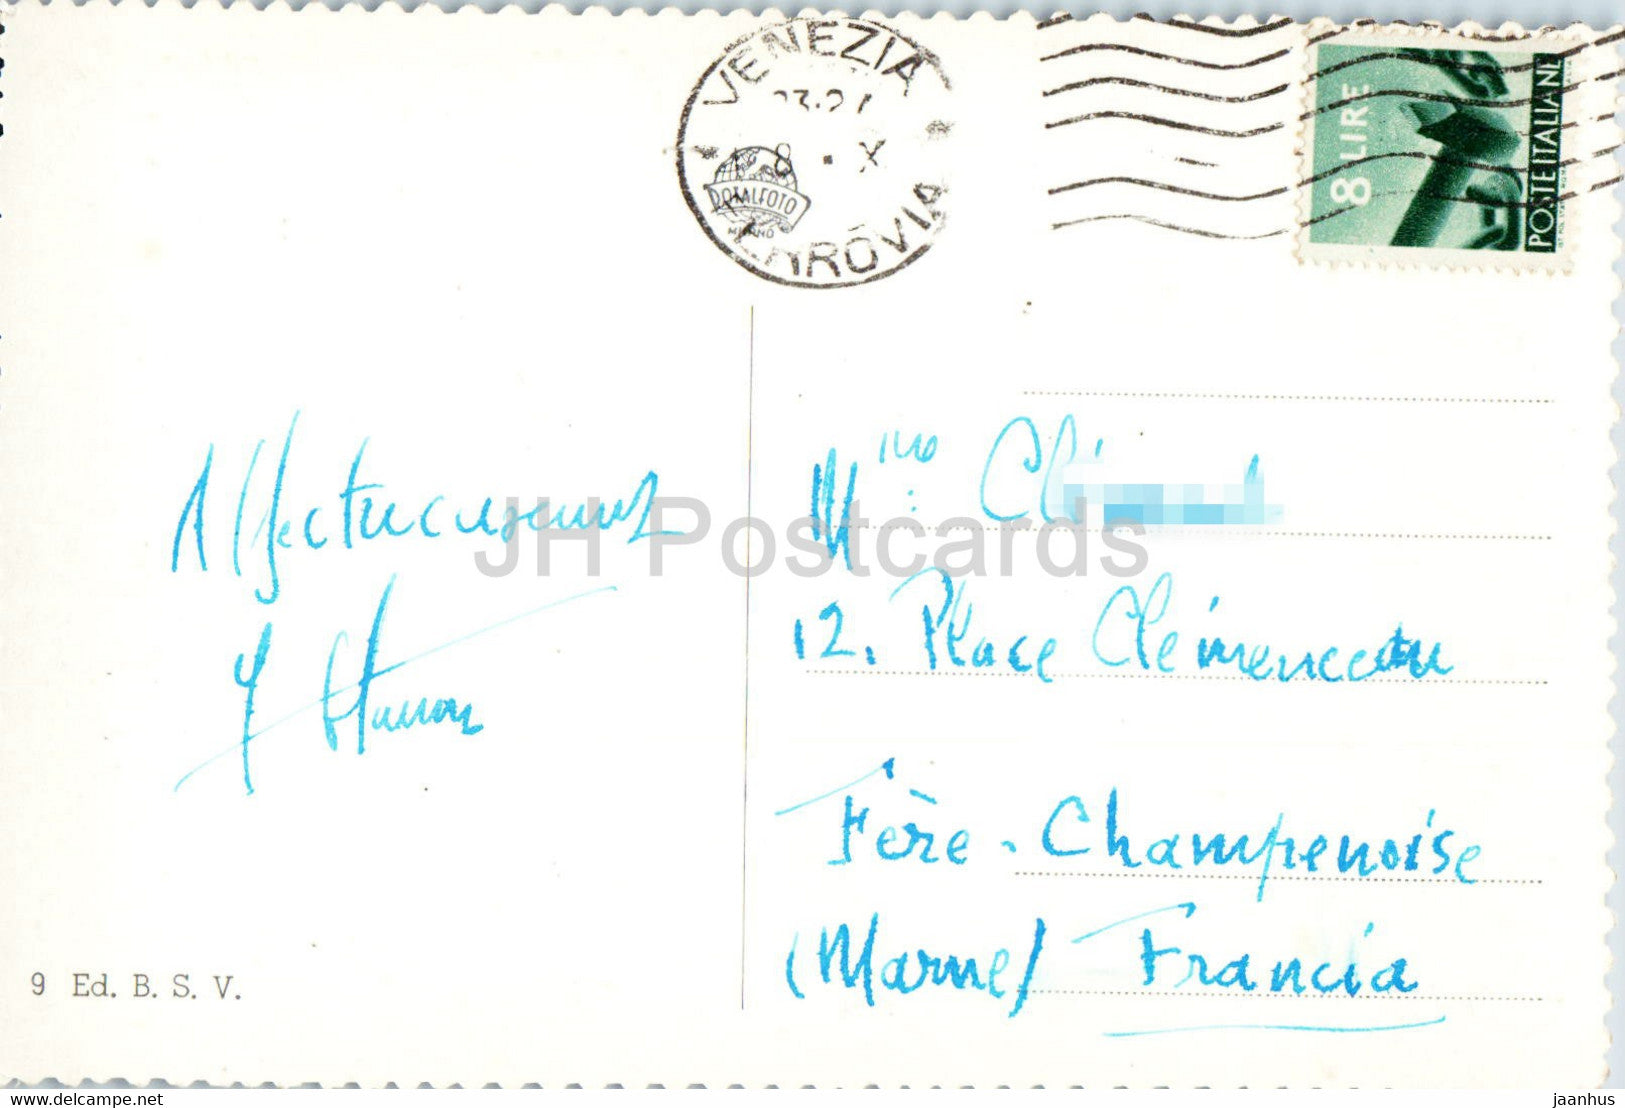 VENEZIA
8 . X
ROTALFOTO
MILANO
FERROVIA
8 LIRE
POSTE ITALIANE
Affectueusement
12. Place Clémenceau
Fère-Champenoise
(Marne) Francia
9 Ed. B. S. V.
JH Postcards
www.delcampe.net
jaanhus